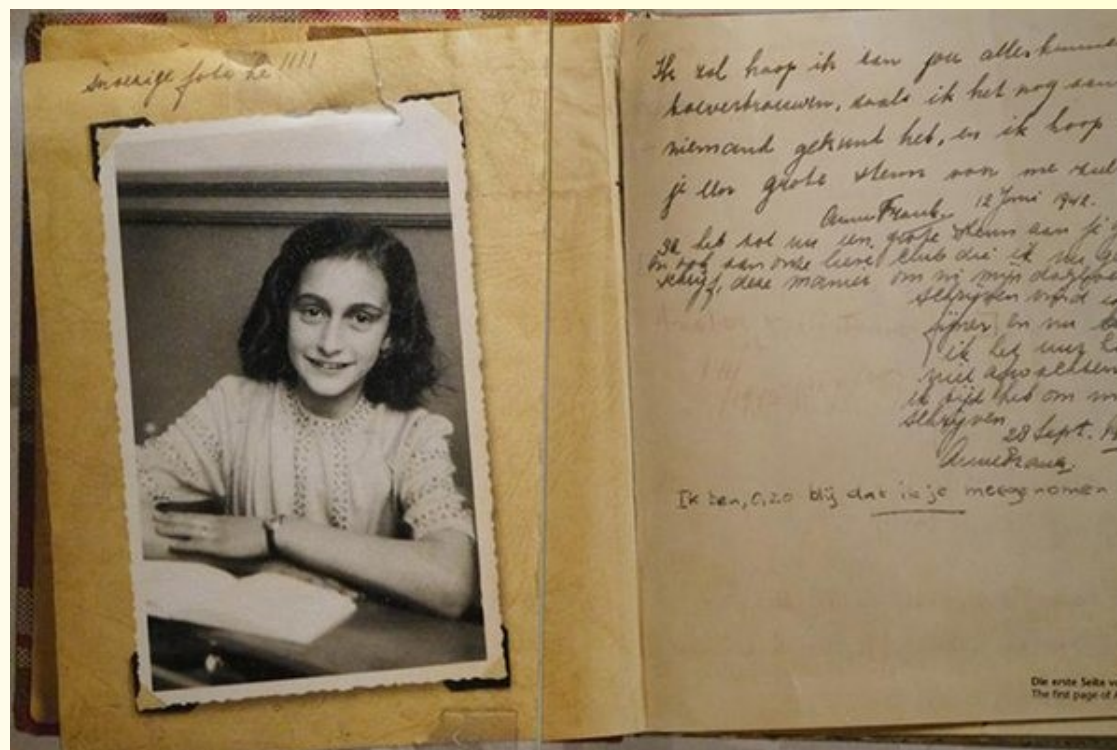 snoezige foto hè!!!!
Ik zal hoop ik aan jou alles kunnen
toevertrouwen, zoals ik het nog aan
niemand gekund heb, en ik hoop
je een grote steun voor me zult
Anne Frank. 12 Juni 1942.
Ik heb tot nu een grote steun aan je
en ook aan onze lieve club die ik nu
schrijf, deze manier om in mijn dagboek
schrijven vind
fijner en nu
ik het uur
niet afwachten
ik tijd heb om in
schrijven
28 Sept.
Anne Frank.
Ik ben, O, zo blij dat ik je meegenomen
Die erste Seite
The first page of